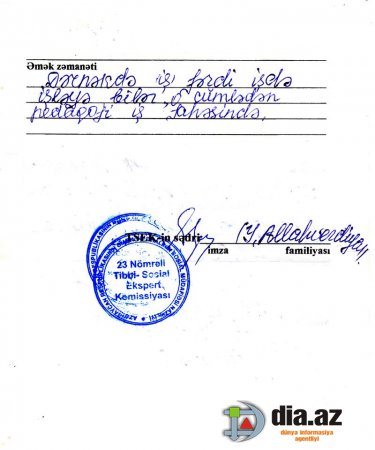 Əmək zəmanəti
Dərnəkdə iş fərdi işdə
işləyə bilər, o cümlədən
pedaqoji iş sahəsində.
TSEK-in sədri
Y. Allahverdiyev
imza familiyası
23 Nömrəli
Tibbi-Sosial
Ekspert
Komissiyası
dia.az
dünya informasiya
agentliyi